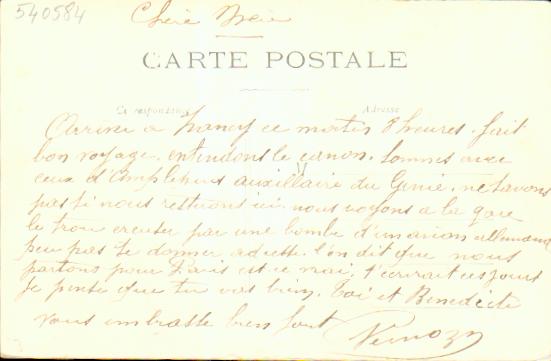 540584
Chère
CARTE POSTALE
Correspondance
Adresse
Arrivé a Nancy ce matin 8 heures. fait
bon voyage. entendons le canon. sommes avec
ceux d'Amplepuis auxilliaire du Genie. ne savons
pas si nous resterons ici. nous voyons a la gare
le trou creuser par une bombe d'un avion allemand
peu pas te donner adresse. l'on dit que nous
partons pour Paris est ce vrai. t'écrirait ces jours
Je pense que tu vas bien. Toi et Benedicte
vous embrasse bien fort